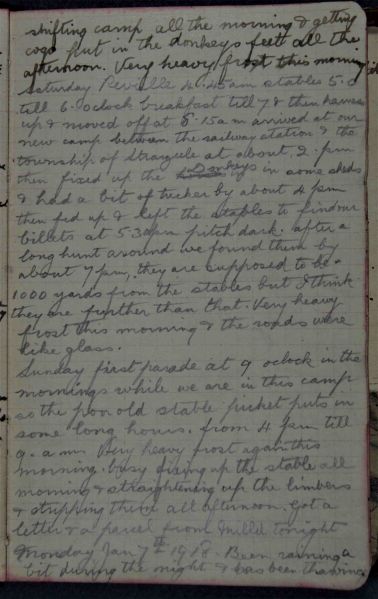 shifting camp all the morning & getting
cogs put in the donkeys feet all the
afternoon. Very heavy frost this morning
Saturday Reveille 4.45am stables 5.0
till 6. oclock breakfast till 7 & then harness
up & moved off at 8.15am arrived at our
new camp between the railway station & the
township of at about 2. pm
then fixed up the in some sheds
& had a bit of tucker by about 4 pm
then fed up & left the stables to find our
billets at 5.30pm pitch dark. after a
long hunt around we found them by
about 7pm, they are supposed to be
1000 yards from the stables but I think
they are further than that. Very heavy
frost this morning & the roads were
like glass.
Sunday first parade at 9 oclock in the
mornings while we are in this camp
so the poor old stable picket puts in
some long hours. from 4 pm till
9. a.m. Very heavy frost again this
morning. busy fixing up the stable all
morning & straightening up the limbers
& stripping them all afternoon. Got a
letter & a parcel from tonight
Monday Jan 7th 1918. Been raining a
bit during the night & has been thawing